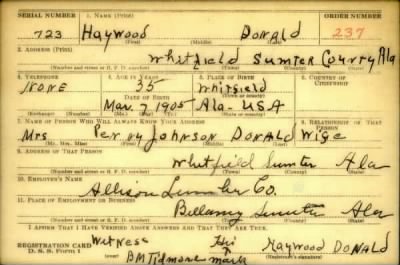 SERIAL NUMBER 1. NAME (Print) ORDER NUMBER
723 Haywood Donald 237
(First) (Middle) (Last)
2. ADDRESS (Print)
Whitfield Sumter County Ala
(Number and street or R. F. D. number) (Town) (County) (State)
3. TELEPHONE 4. AGE IN YEARS 5. PLACE OF BIRTH 6. COUNTRY OF CITIZENSHIP
NONE 35 Whitfield
DATE OF BIRTH (Town or county)
May 7 1905 Ala- USA
(Exchange) (Number) (Mo.) (Day) (Yr.) (State or country)
7. NAME OF PERSON WHO WILL ALWAYS KNOW YOUR ADDRESS 8. RELATIONSHIP OF THAT PERSON
Mrs Johnson Donald Wife
(Mr., Mrs., Miss) (First) (Middle) (Last)
9. ADDRESS OF THAT PERSON
Whitfield Sumter Ala
(Number and street or R. F. D. number) (Town) (County) (State)
10. EMPLOYER'S NAME
Allison Lumber Co.
11. PLACE OF EMPLOYMENT OR BUSINESS
Bellamy Sumter Ala
(Number and street or R. F. D. number) (Town) (County) (State)
I AFFIRM THAT I HAVE VERIFIED ABOVE ANSWERS AND THAT THEY ARE TRUE.
REGISTRATION CARD Witness His Haywood DONALD
D. S. S. Form 1 BM Tidmore mark
(over)